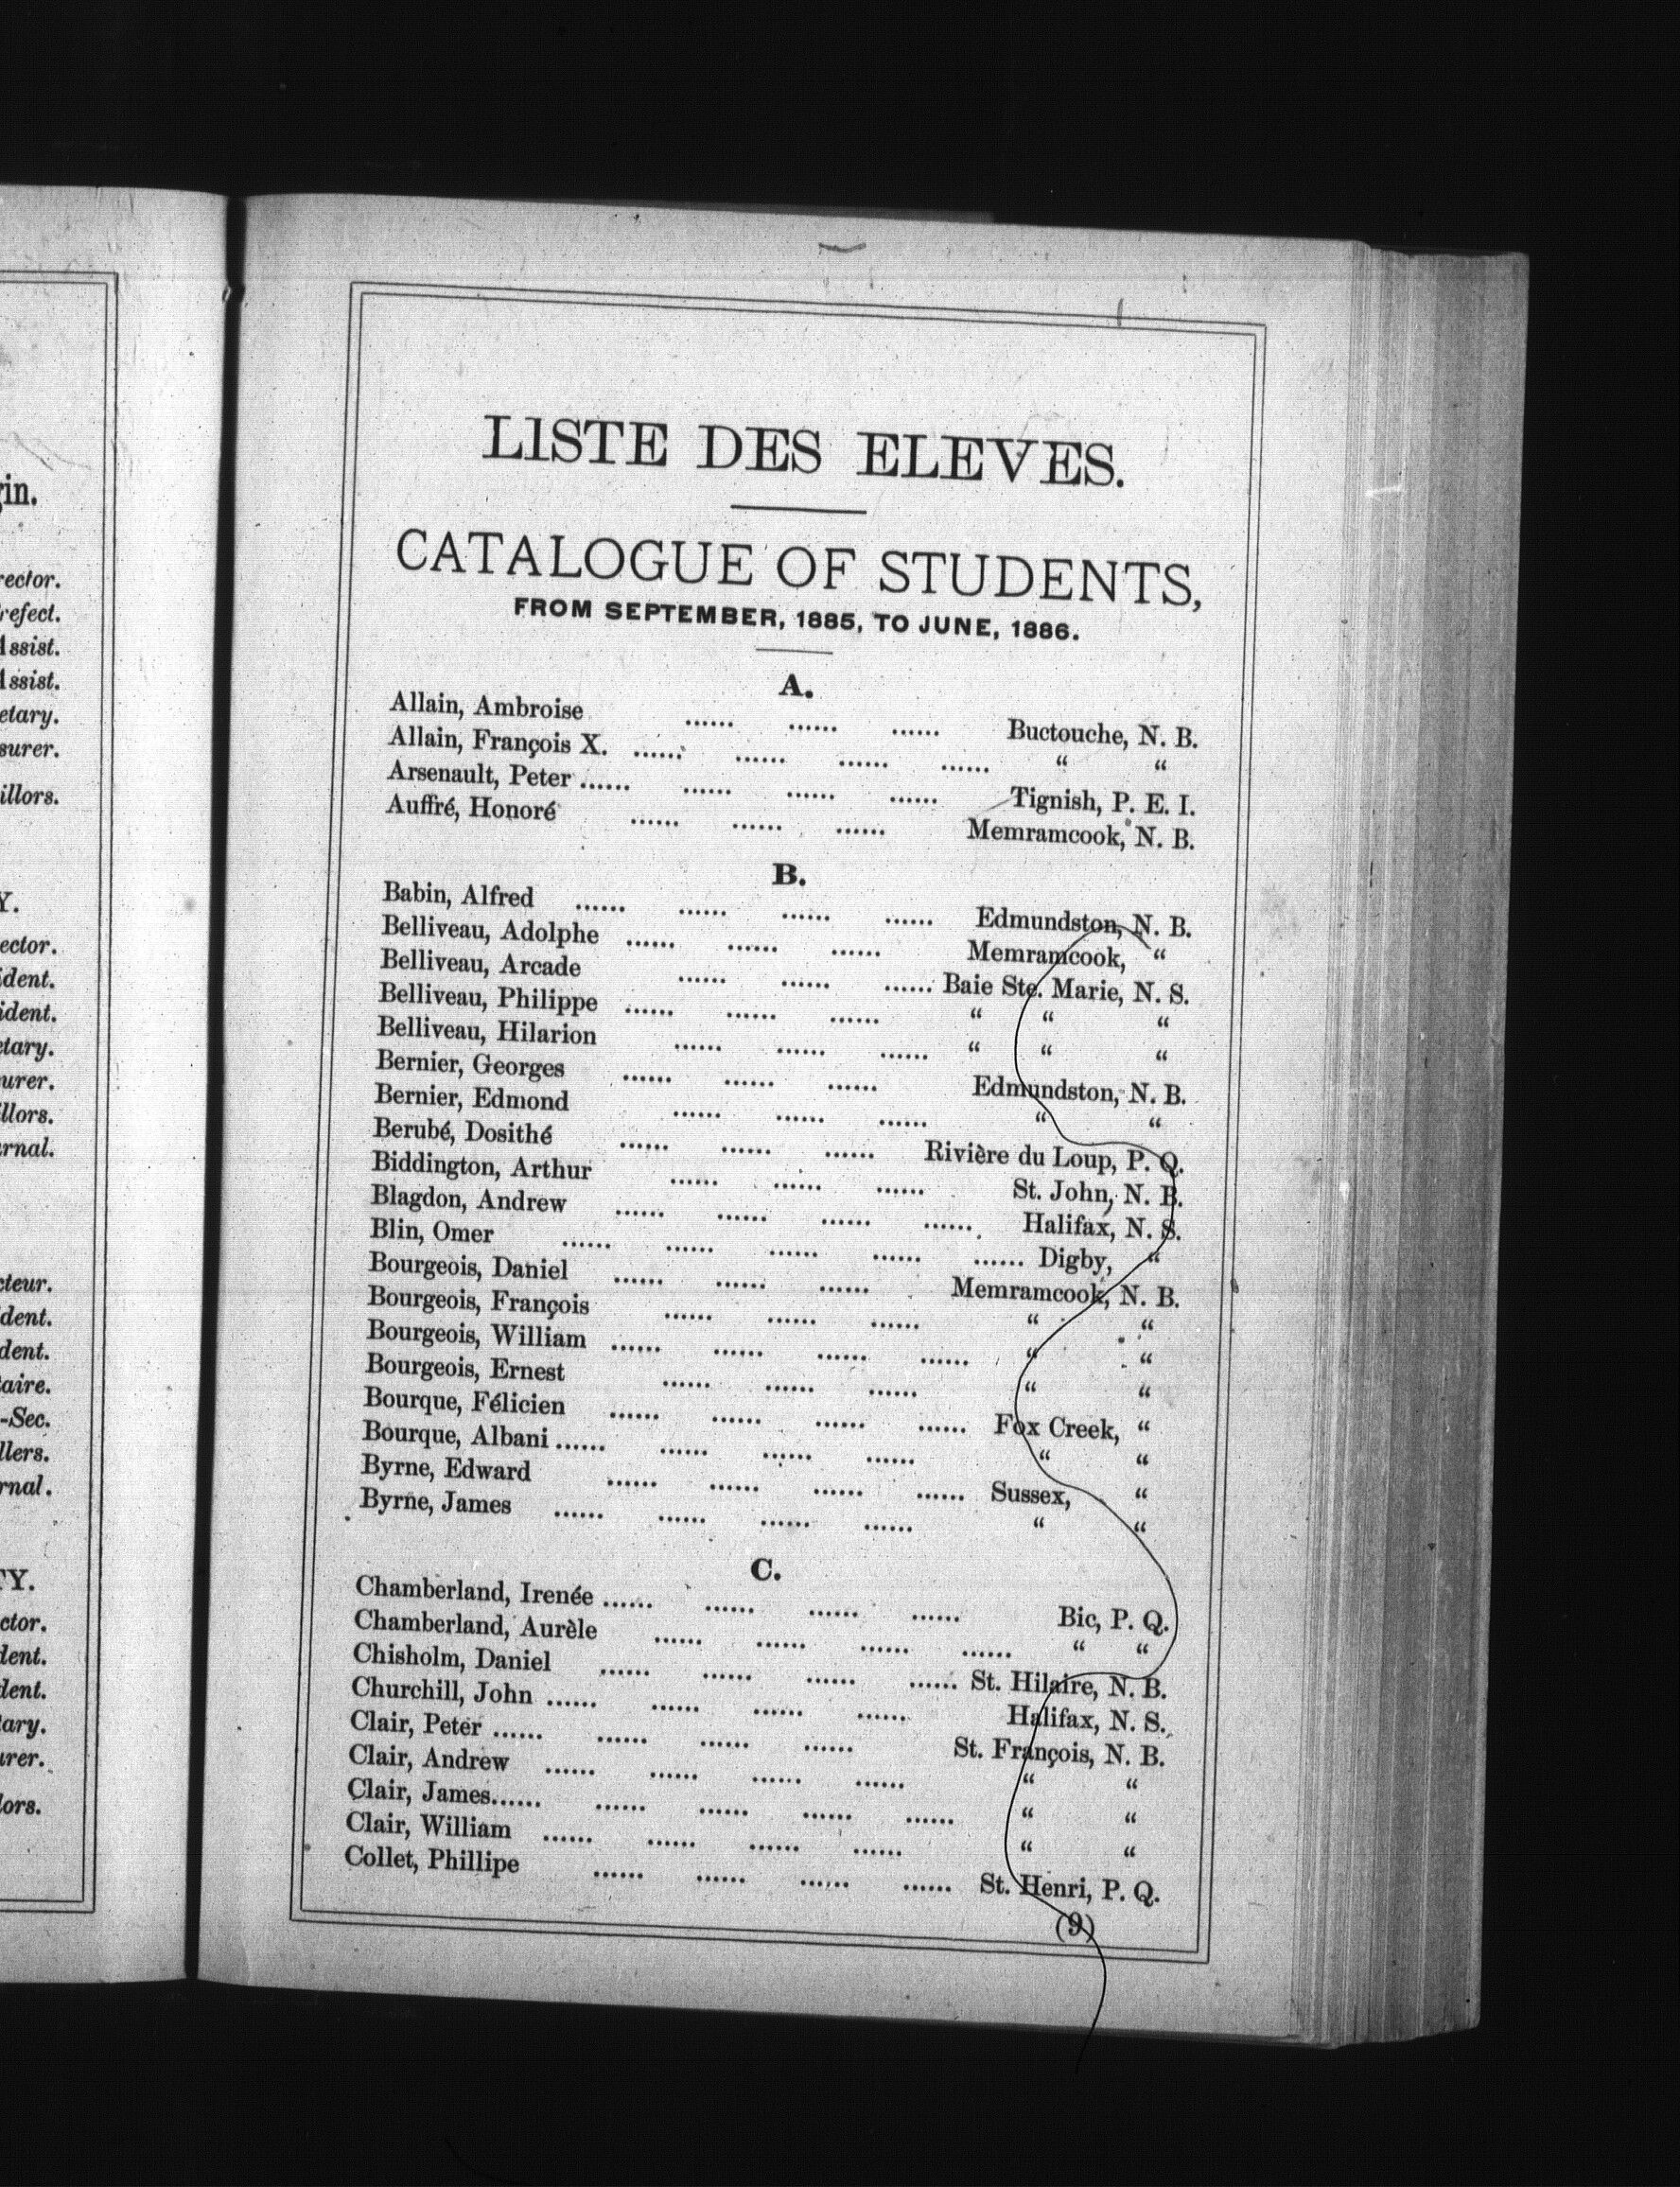 gin.
rector.
refect.
Assist.
Assist.
etary.
surer.
illors.
Y.
ector.
ident.
ident.
etary.
urer.
illors.
rnal.
cteur.
dent.
dent.
taire.
-Sec.
llers.
rnal.
TY.
ctor.
dent.
dent.
tary.
urer.
lors.
LISTE DES ELEVES.
CATALOGUE OF STUDENTS,
FROM SEPTEMBER, 1885, TO JUNE, 1886.
A.
Allain, Ambroise ...... ...... ...... Buctouche, N. B.
Allain, François X. ...... ...... ...... ...... “ “
Arsenault, Peter ...... ...... ...... ...... Tignish, P. E. I.
Auffré, Honoré ...... ...... ...... Memramcook, N. B.
B.
Babin, Alfred ...... ...... ...... ...... Edmundston, N. B.
Belliveau, Adolphe ...... ...... ...... Memramcook, “
Belliveau, Arcade ...... ...... ...... Baie Ste. Marie, N. S.
Belliveau, Philippe ...... ...... ...... “ “ “
Belliveau, Hilarion ...... ...... ...... “ “ “
Bernier, Georges ...... ...... ...... Edmundston, N. B.
Bernier, Edmond ...... ...... ...... “ “
Berubé, Dosithé ...... ...... ...... Rivière du Loup, P. Q.
Biddington, Arthur ...... ...... ...... St. John, N. B.
Blagdon, Andrew ...... ...... ...... ...... Halifax, N. S.
Blin, Omer ...... ...... ...... ...... ...... Digby, “
Bourgeois, Daniel ...... ...... ...... Memramcook, N. B.
Bourgeois, François ...... ...... ...... “ “
Bourgeois, William ...... ...... ...... ...... “ “
Bourgeois, Ernest ...... ...... ...... “ “
Bourque, Félicien ...... ...... ...... ...... Fox Creek, “
Bourque, Albani ...... ...... ...... ...... “ “
Byrne, Edward ...... ...... ...... ...... Sussex, “
Byrne, James ...... ...... ...... ...... “ “
C.
Chamberland, Irenée ...... ...... ...... ...... Bic, P. Q.
Chamberland, Aurèle ...... ...... ...... ...... “ “
Chisholm, Daniel ...... ...... ...... ...... St. Hilaire, N. B.
Churchill, John ...... ...... ...... ...... Halifax, N. S.
Clair, Peter ...... ...... ...... ...... St. François, N. B.
Clair, Andrew ...... ...... ...... ...... “ “
Clair, James...... ...... ...... ...... ...... “ “
Clair, William ...... ...... ...... ...... “ “
Collet, Phillipe ...... ...... ...... ...... St. Henri, P. Q.
(9)